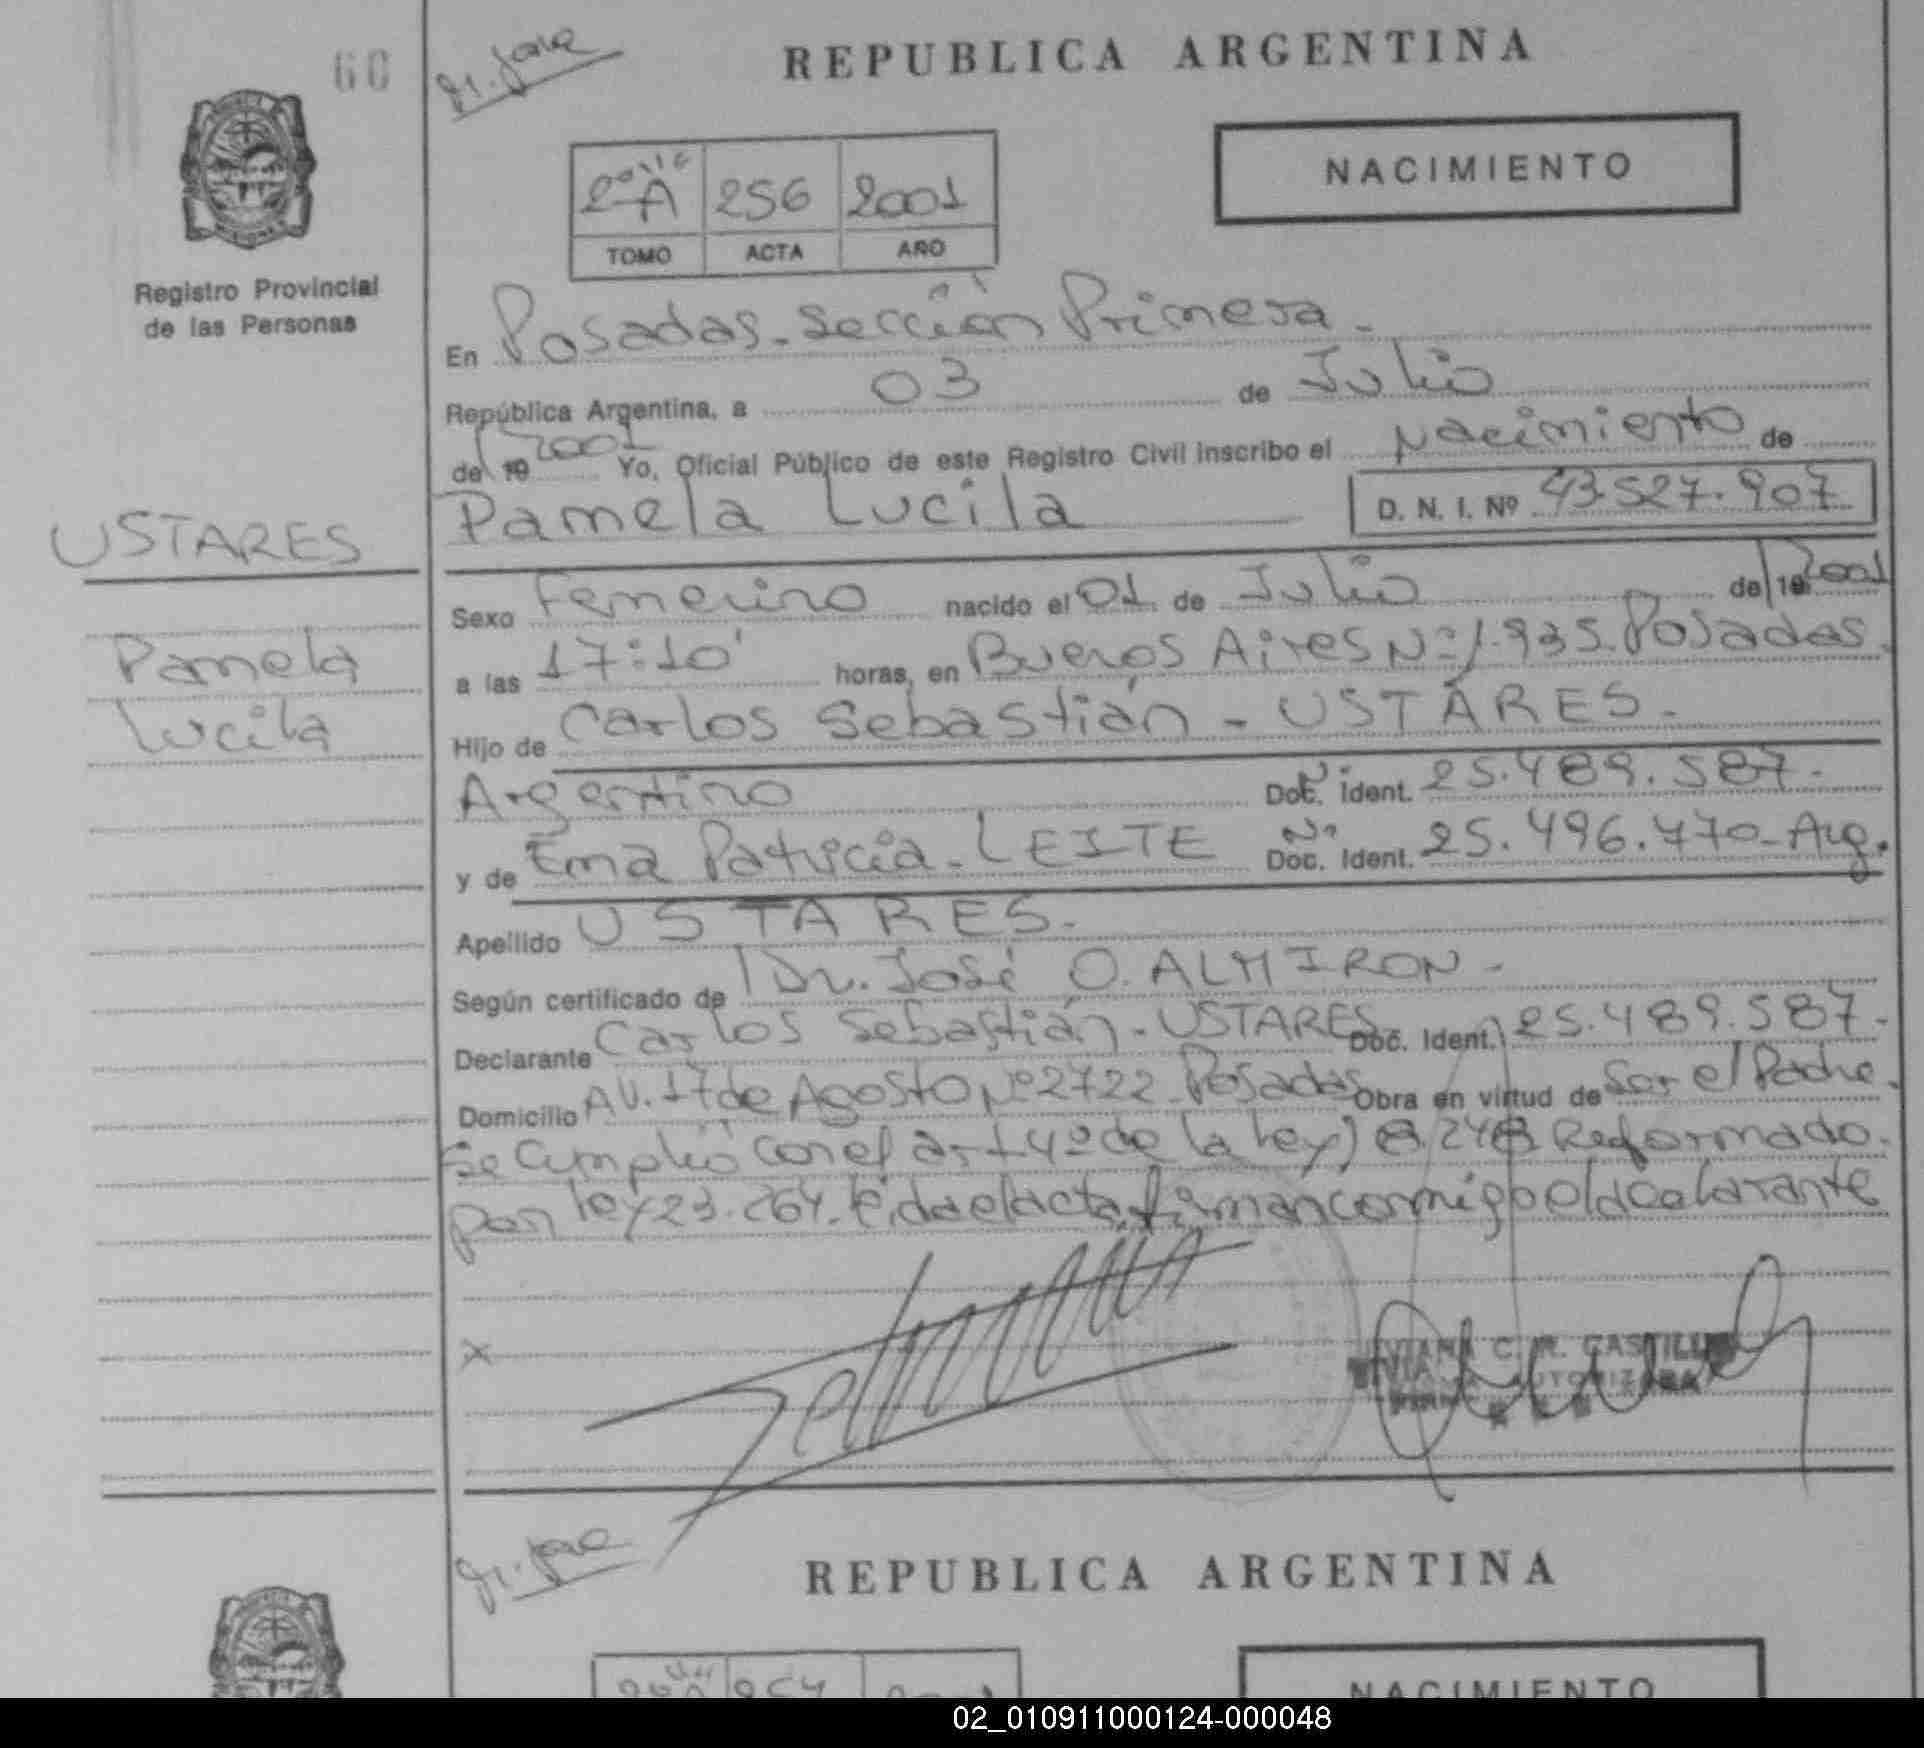 60
REPUBLICA ARGENTINA
NACIMIENTO
2º "A" 256 2001
TOMO ACTA AÑO
Registro Provincial
de las Personas
En Posadas - Sección Primera -
República Argentina, a 03 de Julio
de 19 2001 Yo, Oficial Público de este Registro Civil inscribo el Nacimiento de
Pamela Lucila D. N. I. Nº 43.527.907
USTARES
Pamela
Lucila
Sexo Femenino nacido el 01 de Julio de 19 2001
a las 17:10' horas, en Buenos Aires Nº 1.935. Posadas.
Hijo de Carlos Sebastián - USTARES -
Argentino Doc. Ident. 25.489.587.-
y de Ema Patricia - LEITE Nº Doc. Ident. 25.496.770 - Arg.
Apellido USTARES.-
Según certificado de Dr. José O. ALMIRON -
Declarante Carlos Sebastián - USTARES Doc. Ident. 25.489.587.-
Domicilio AV. 17 de Agosto Nº 2722 - Posadas Obra en virtud de Ser el Padre.
Se Cumplió con el art 4º de la ley 18.248 Reformado.
por ley 23.264. leida el acta, firman conmigo el declarante
X
VIVIANA C. R. CASTILLO
REPUBLICA ARGENTINA
NACIMIENTO
02_010911000124-000048